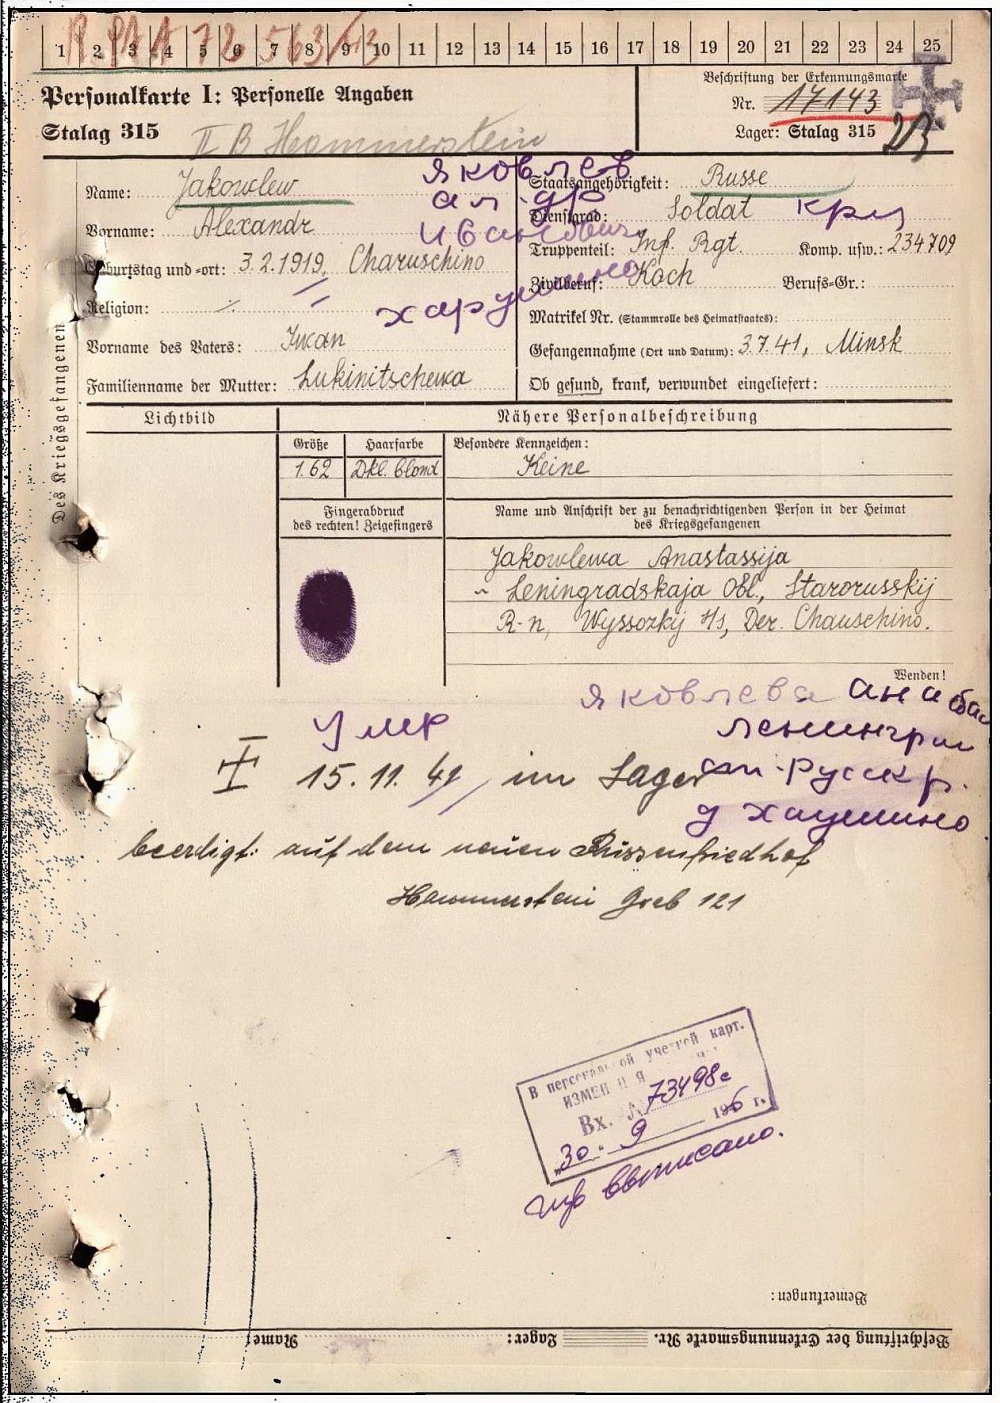 1 2 3 4 5 6 7 8 9 10 11 12 13 14 15 16 17 18 19 20 21 22 23 24 25
Personalkarte I: Personelle Angaben
Stalag 315
II B Hammerstein
Beschriftung der Erkennungsmarke
Nr. 17143
Lager: Stalag 315
Name: Jakowlew
Яковлев
Vorname: Alexandr
ал-др
Иванович
Geburtstag und -ort: 3.2.1919, Charuschino
Харушино
Religion: ./.
Vorname des Vaters: Iwan
Familienname der Mutter: Lukinitschewa
Staatsangehörigkeit: Russe
Dienstgrad: Soldat
Truppenteil: Inf. Rgt. Komp. usw.: 234709
Zivilberuf: Koch Berufs-Gr.:
Matrikel Nr. (Stammrolle des Heimatstaates):
Gefangennahme (Ort und Datum): 3.7.41, Minsk
Ob gesund, krank, verwundet eingeliefert:
Des Kriegsgefangenen
Lichtbild
Nähere Personalbeschreibung
Größe Haarfarbe Besondere Kennzeichen:
1.62 Dkl. blond Keine
Fingerabdruck
des rechten! Zeigefingers
Name und Anschrift der zu benachrichtigenden Person in der Heimat
des Kriegsgefangenen
Jakowlewa Anastassija
Leningradskaja Obl., Starorusskij
R-n, Wyssozkij S/s, Der. Chauschino.
Wenden!
Яковлева
Ленинград
Русск р.
д Хаушино
умер
15.11.41 im Lager
beerdigt: auf dem neuen Russenfriedhof
Hammerstein Grab 121
В персональной учетной карт.
ИЗМЕНЕНИЯ
Вх. № 73498с
"30" 9 1956 г.
выписано.
Bemerkungen:
Beschriftung der Erkennungsmarke Nr. Lager: Name: